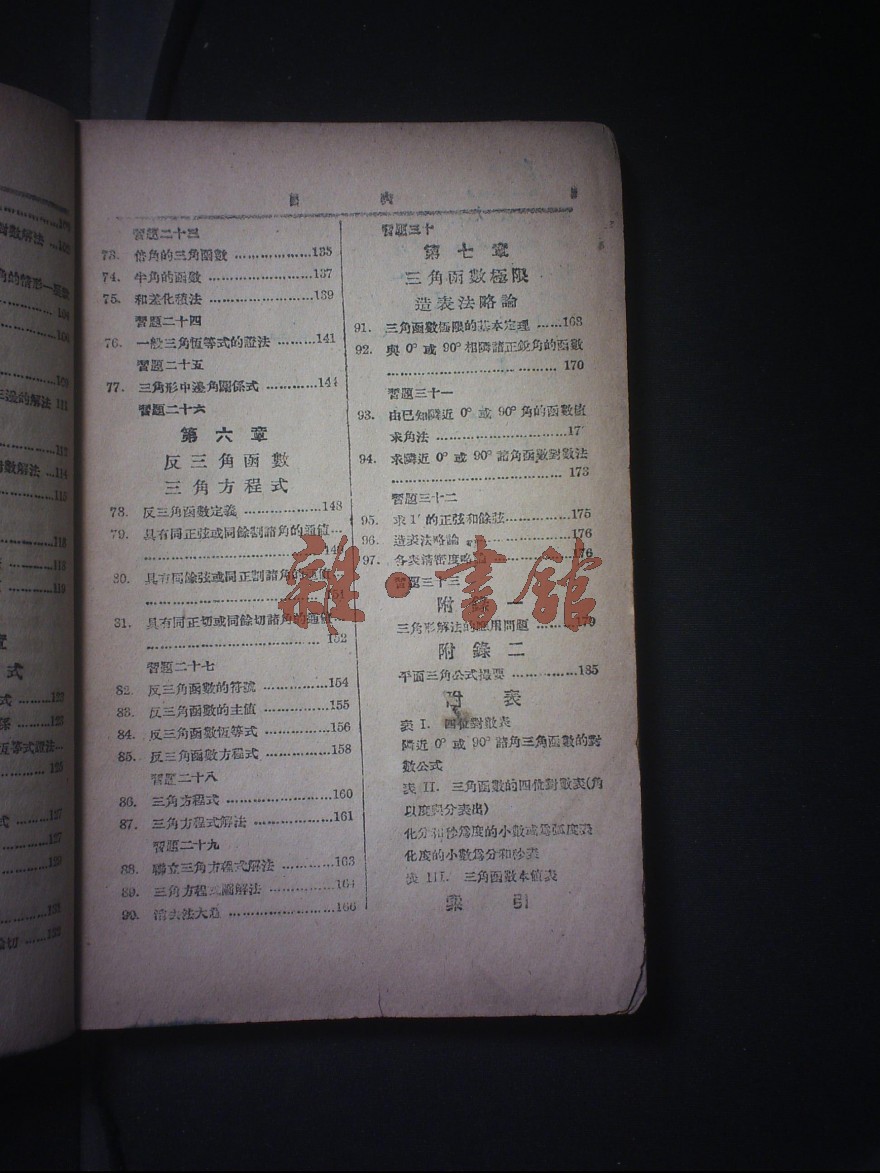 目 次
習題二十三
73. 倍角的三角函數 ………………135
74. 半角的函數 ………………137
75. 和差化積法 ………………139
習題二十四
76. 一般三角恆等式的證法 ………141
習題二十五
77. 三角形中邊角關係式 …………144
習題二十六
第 六 章
反 三 角 函 數
三 角 方 程 式
78. 反三角函數定義 ………………148
79. 具有同正弦或同餘割諸角的通值…
80. 具有同餘弦或同正割諸角的通值…
………………………… 151
81. 具有同正切或同餘切諸角的通值…
………………………… 152
習題二十七
82. 反三角函數的符號 ……………154
83. 反三角函數的主值 ……………155
84. 反三角函數恆等式 ……………156
85. 反三角函數方程式 ……………158
習題二十八
86. 三角方程式 ……………………160
87. 三角方程式解法 ………………161
習題二十九
88. 聯立三角方程式解法 …………163
89. 三角方程式圖解法 ……………164
90. 消去法大意 ……………………166
習題三十
第 七 章
三 角 函 數 極 限
造 表 法 略 論
91. 三角函數極限的基本定理 ……168
92. 與 0° 或 90° 相隣諸正銳角的函數
………………………… 170
習題三十一
93. 由已知隣近 0° 或 90° 角的函數值
求角法 ……………………17
94. 求隣近 0° 或 90° 諸角函數對數法
………………………… 173
習題三十二
95. 求 1′ 的正弦和餘弦……………175
96. 造表法略論 ……………… 176
97. 各表精密度略論 ………… 176
習題三十三
附 錄 一
三角形解法的應用問題 ………179
附 錄 二
平面三角公式撮要 ……………185
附 表
表 I. 四位對數表
隣近 0° 或 90° 諸角三角函數的對
數公式
表 II. 三角函數的四位對數表(角
以度與分表出)
化分和秒爲度的小數或爲弧度表
化度的小數爲分和秒表
表 III. 三角函數本值表
索 引
雜·書館